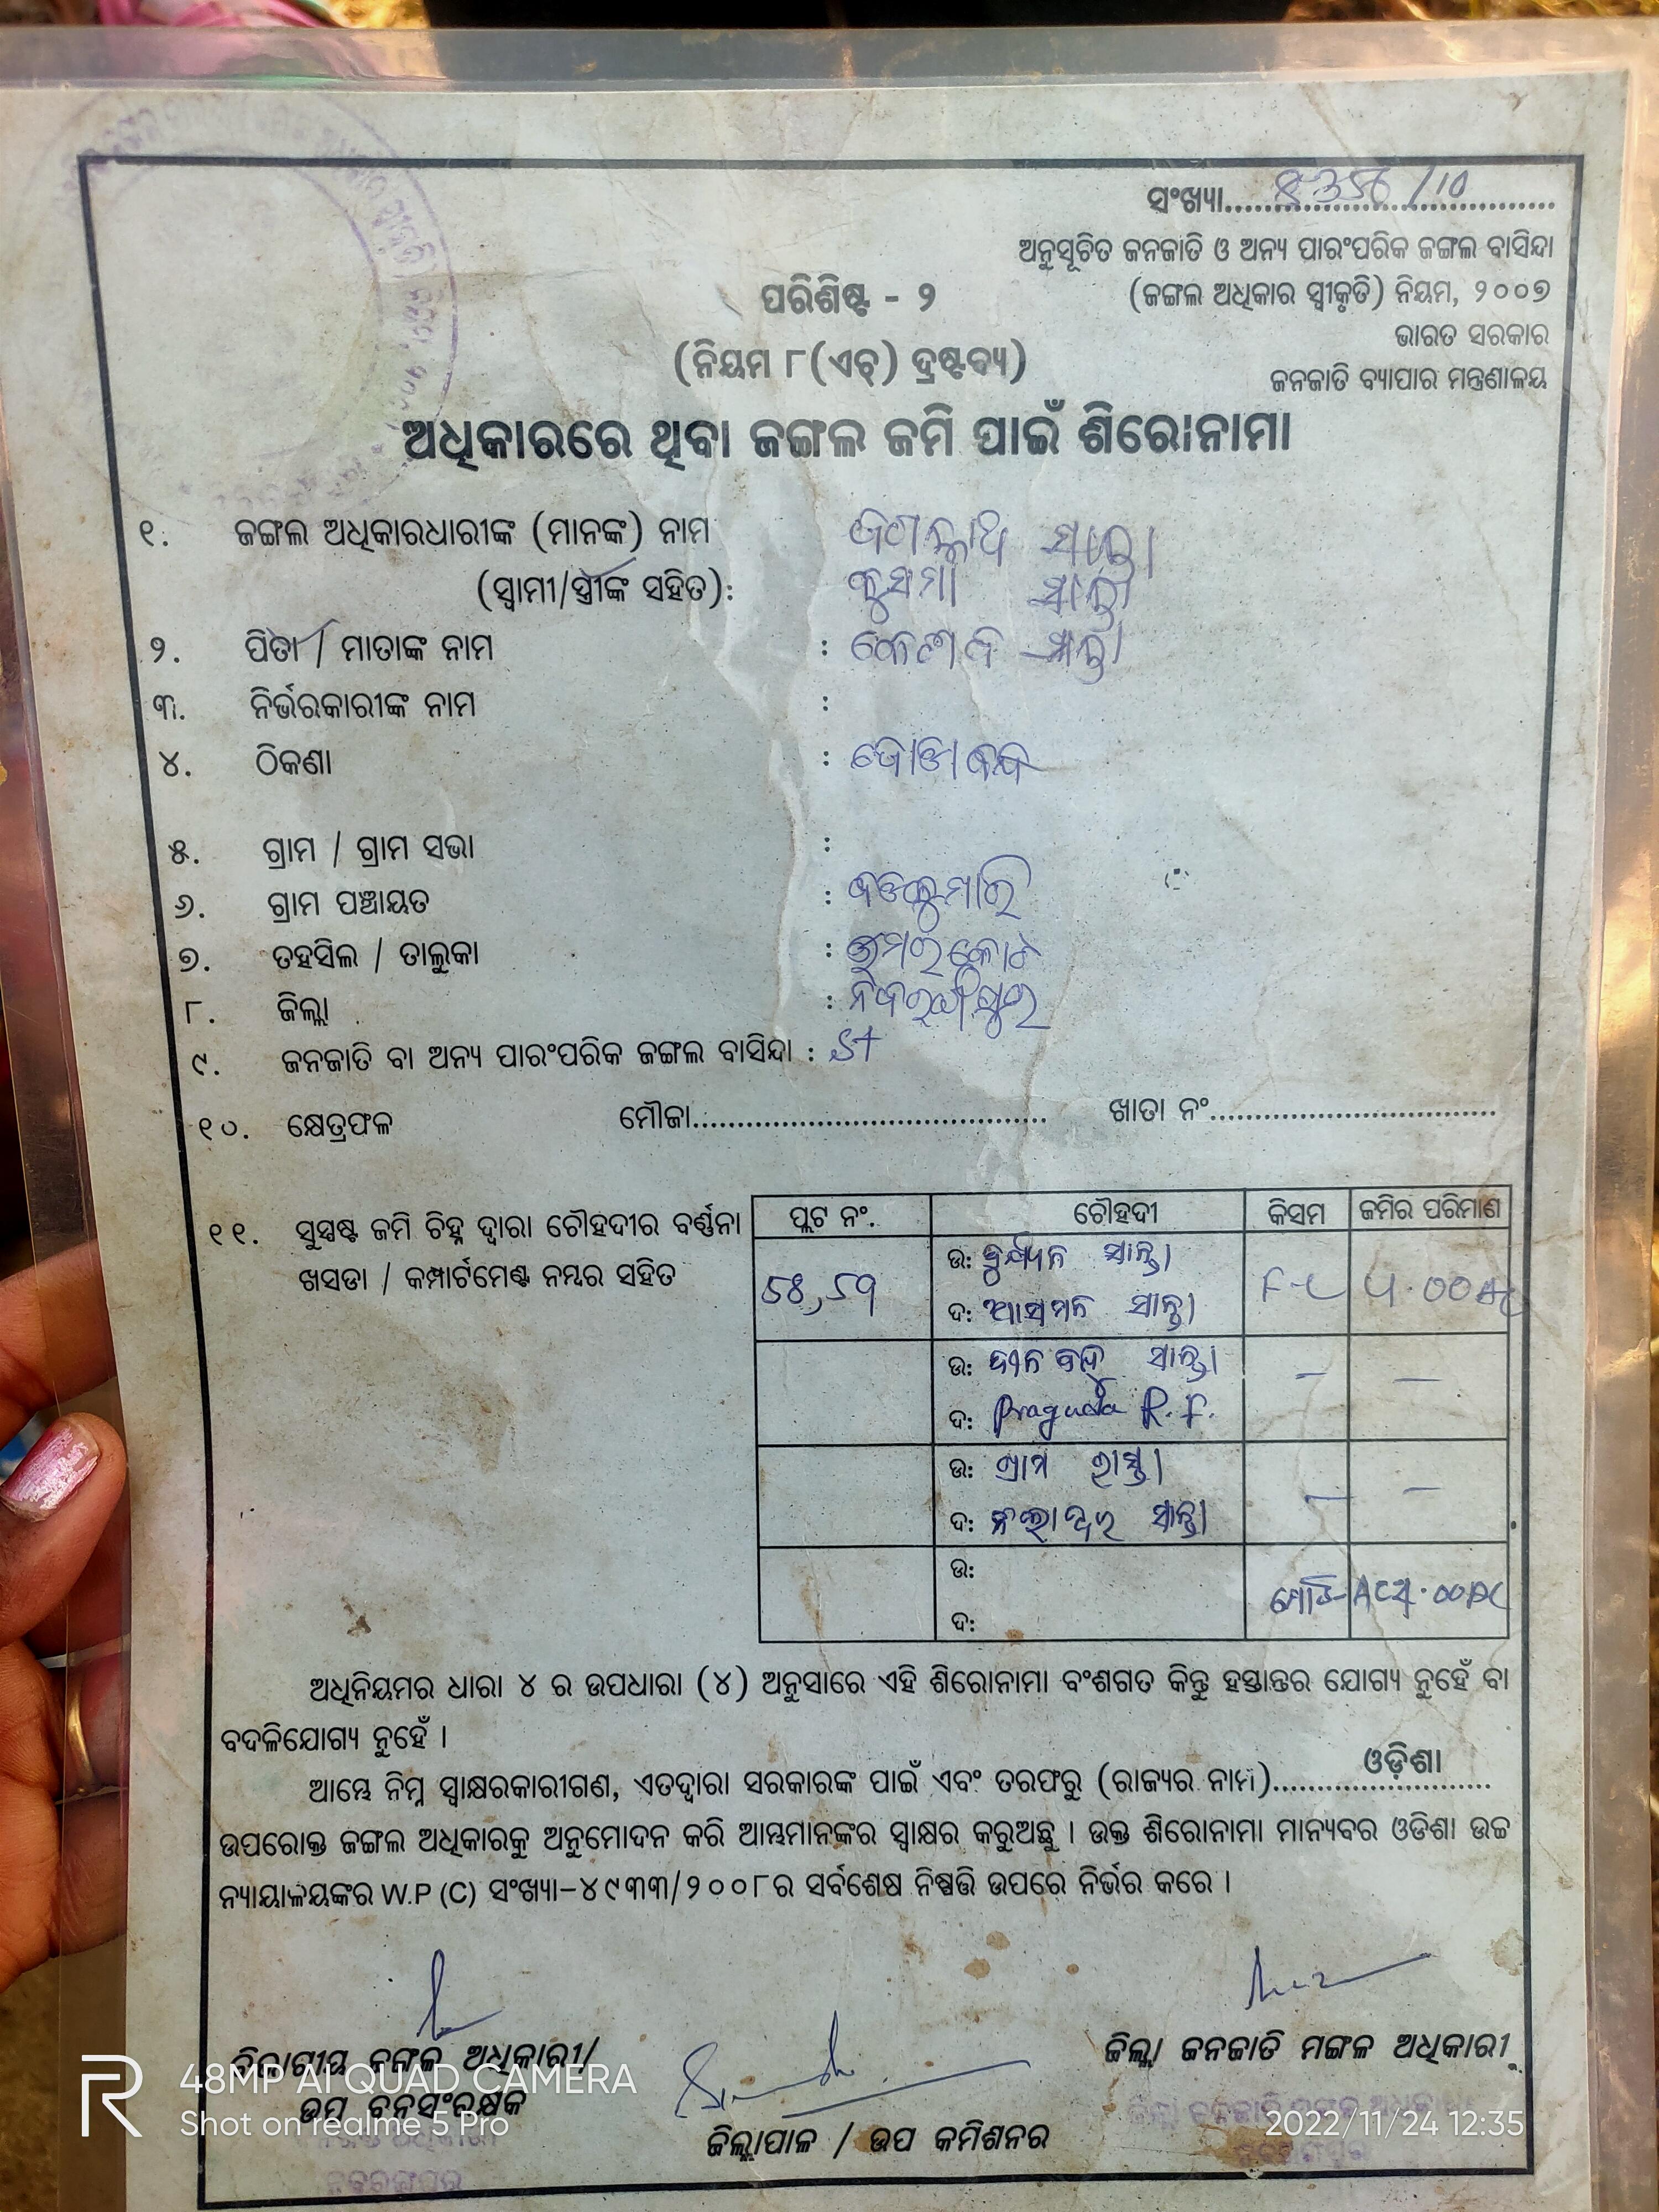 ସଂଖ୍ୟା.................................
ଅନୁସୂଚିତ ଜନଜାତି ଓ ଅନ୍ୟ ପାରଂପରିକ ଜଙ୍ଗଲ ବାସିନ୍ଦା
(ଜଙ୍ଗଲ ଅଧିକାର ସ୍ୱୀକୃତି) ନିୟମ, ୨୦୦୭
ଭାରତ ସରକାର
ଜନଜାତି ବ୍ୟାପାର ମନ୍ତ୍ରଣାଳୟ
ପରିଶିଷ୍ଟ - ୨
(ନିୟମ ୮(ଏଚ୍) ଦ୍ରଷ୍ଟବ୍ୟ)
ଅଧିକାରରେ ଥିବା ଜଙ୍ଗଲ ଜମି ପାଇଁ ଶିରୋନାମା
୧. ଜଙ୍ଗଲ ଅଧିକାରଧାରୀଙ୍କ (ମାନଙ୍କ) ନାମ ଜଗନ୍ନାଥ ସାନ୍ତା
(ସ୍ୱାମୀ/ସ୍ତ୍ରୀଙ୍କ ସହିତ): କୁସମା ସାନ୍ତା
୨. ପିତା / ମାତାଙ୍କ ନାମ : ସାନ୍ତା
୩. ନିର୍ଭରକାରୀଙ୍କ ନାମ :
୪. ଠିକଣା :
୫. ଗ୍ରାମ / ଗ୍ରାମ ସଭା :
୬. ଗ୍ରାମ ପଞ୍ଚାୟତ : ବଡକୁମାରି
୭. ତହସିଲ / ତାଲୁକା : ଉମରକୋଟ
୮. ଜିଲ୍ଲା : ନବରଙ୍ଗପୁର
୯. ଜନଜାତି ବା ଅନ୍ୟ ପାରଂପରିକ ଜଙ୍ଗଲ ବାସିନ୍ଦା : ST
୧୦. କ୍ଷେତ୍ରଫଳ ମୌଜା........................................ ଖାତା ନଂ................................
୧୧. ସୁସ୍ପଷ୍ଟ ଜମି ଚିହ୍ନ ଦ୍ୱାରା ଚୌହଦୀର ବର୍ଣ୍ଣନା
ଖସଡା / କମ୍ପାର୍ଟମେଣ୍ଟ ନମ୍ବର ସହିତ
ପ୍ଲଟ ନଂ. ଚୌହଦୀ କିସମ ଜମିର ପରିମାଣ
ଉ: ସାନ୍ତା
ଦ: ଆସମନ ସାନ୍ତା
ଉ: ଦୀନ ବନ୍ଧୁ ସାନ୍ତା — —
ଦ: R.F.
ଉ: ଗ୍ରାମ ରାସ୍ତା — —
ଦ: ସାନ୍ତା
ଉ:
ଦ:
ଅଧିନିୟମର ଧାରା ୪ ର ଉପଧାରା (୪) ଅନୁସାରେ ଏହି ଶିରୋନାମା ବଂଶଗତ କିନ୍ତୁ ହସ୍ତାନ୍ତର ଯୋଗ୍ୟ ନୁହେଁ ବା
ବଦଳିଯୋଗ୍ୟ ନୁହେଁ ।
ଆମ୍ଭେ ନିମ୍ନ ସ୍ୱାକ୍ଷରକାରୀଗଣ, ଏତଦ୍ୱାରା ସରକାରଙ୍କ ପାଇଁ ଏବଂ ତରଫରୁ (ରାଜ୍ୟର ନାମ)......ଓଡ଼ିଶା......
ଉପରୋକ୍ତ ଜଙ୍ଗଲ ଅଧିକାରକୁ ଅନୁମୋଦନ କରି ଆମ୍ଭମାନଙ୍କର ସ୍ୱାକ୍ଷର କରୁଅଛୁ । ଉକ୍ତ ଶିରୋନାମା ମାନ୍ୟବର ଓଡିଶା ଉଚ୍ଚ
ନ୍ୟାୟାଳୟଙ୍କର W.P (C) ସଂଖ୍ୟା-୪୯୩୩/୨୦୦୮ର ସର୍ବଶେଷ ନିଷ୍ପତ୍ତି ଉପରେ ନିର୍ଭର କରେ ।
ବିଭାଗୀୟ ଜଙ୍ଗଲ ଅଧିକାରୀ/
ଉପ ବନସଂରକ୍ଷକ
ଜିଲ୍ଲାପାଳ / ଉପ କମିଶନର
ଜିଲ୍ଲା ଜନଜାତି ମଙ୍ଗଳ ଅଧିକାରୀ
ଜିଲ୍ଲା ଜନଜାତି ମଙ୍ଗଳ ଅଧିକାରୀ
ନବରଙ୍ଗପୁର
ନବରଙ୍ଗପୁର
48MP AI QUAD CAMERA
Shot on realme 5 Pro
2022/11/24 12:35